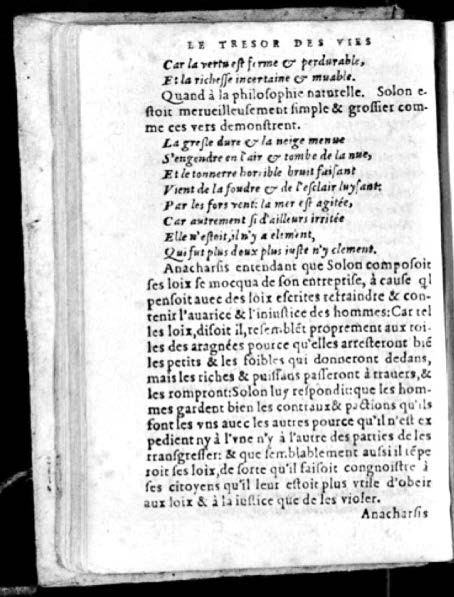 LE TRESOR DES VIES
Car la vertu est ferme & perdurable,
Et la richesse incertaine & muable.
Quand à la philosophie naturelle. Solon e-
stoit merueilleusement simple & grossier com-
me ces vers demonstrent.
La gresle dure & la neige menue
S'engendre en l'air & tombe de la nue,
Et le tonnerre horrible bruit faisant
Vient de la foudre & de l'esclair luysant:
Par les fors vent: la mer est agitée,
Car autrement si d'ailleurs irritée
Elle n'estoit, il n'y a element,
Qui fut plus doux plus iuste n'y clement.
Anacharsis entendant que Solon composoit
ses loix se mocqua de son entreprise, à cause ql
pensoit auec des loix escrites refraindre & con-
tenir l'auarice & l'iniustice des hommes: Car tel
les loix, disoit il, resemblēt proprement aux toi-
les des aragnées pource qu'elles arresteront biē
les petits & les foibles qui donneront dedans,
mais les riches & puissans passeront à trauers, &
les rompront: Solon luy respondit: que les hom-
mes gardent bien les contraux & pactions qu'ils
font les vns auec les autres pource qu'il n'est ex
pedient ny à l'vne n'y à l'autre des parties de les
transgresser: & que semblablement aussi il tēpe
roit ses loix, de sorte qu'il faisoit congnoistre à
ses citoyens qu'il leur estoit plus vtile d'obeir
aux loix & à la iustice que de les violer.
Anacharsis